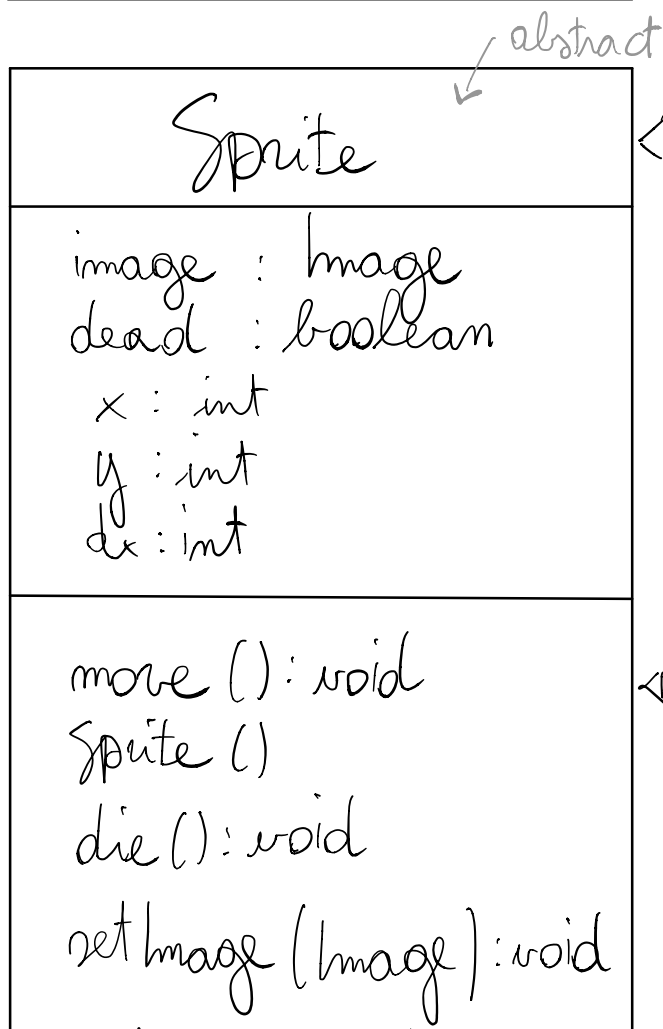 abstract
Sprite
image : Image
dead : boolean
x : int
y : int
dx : int
move () : void
Sprite ()
die () : void
setImage (Image) : void